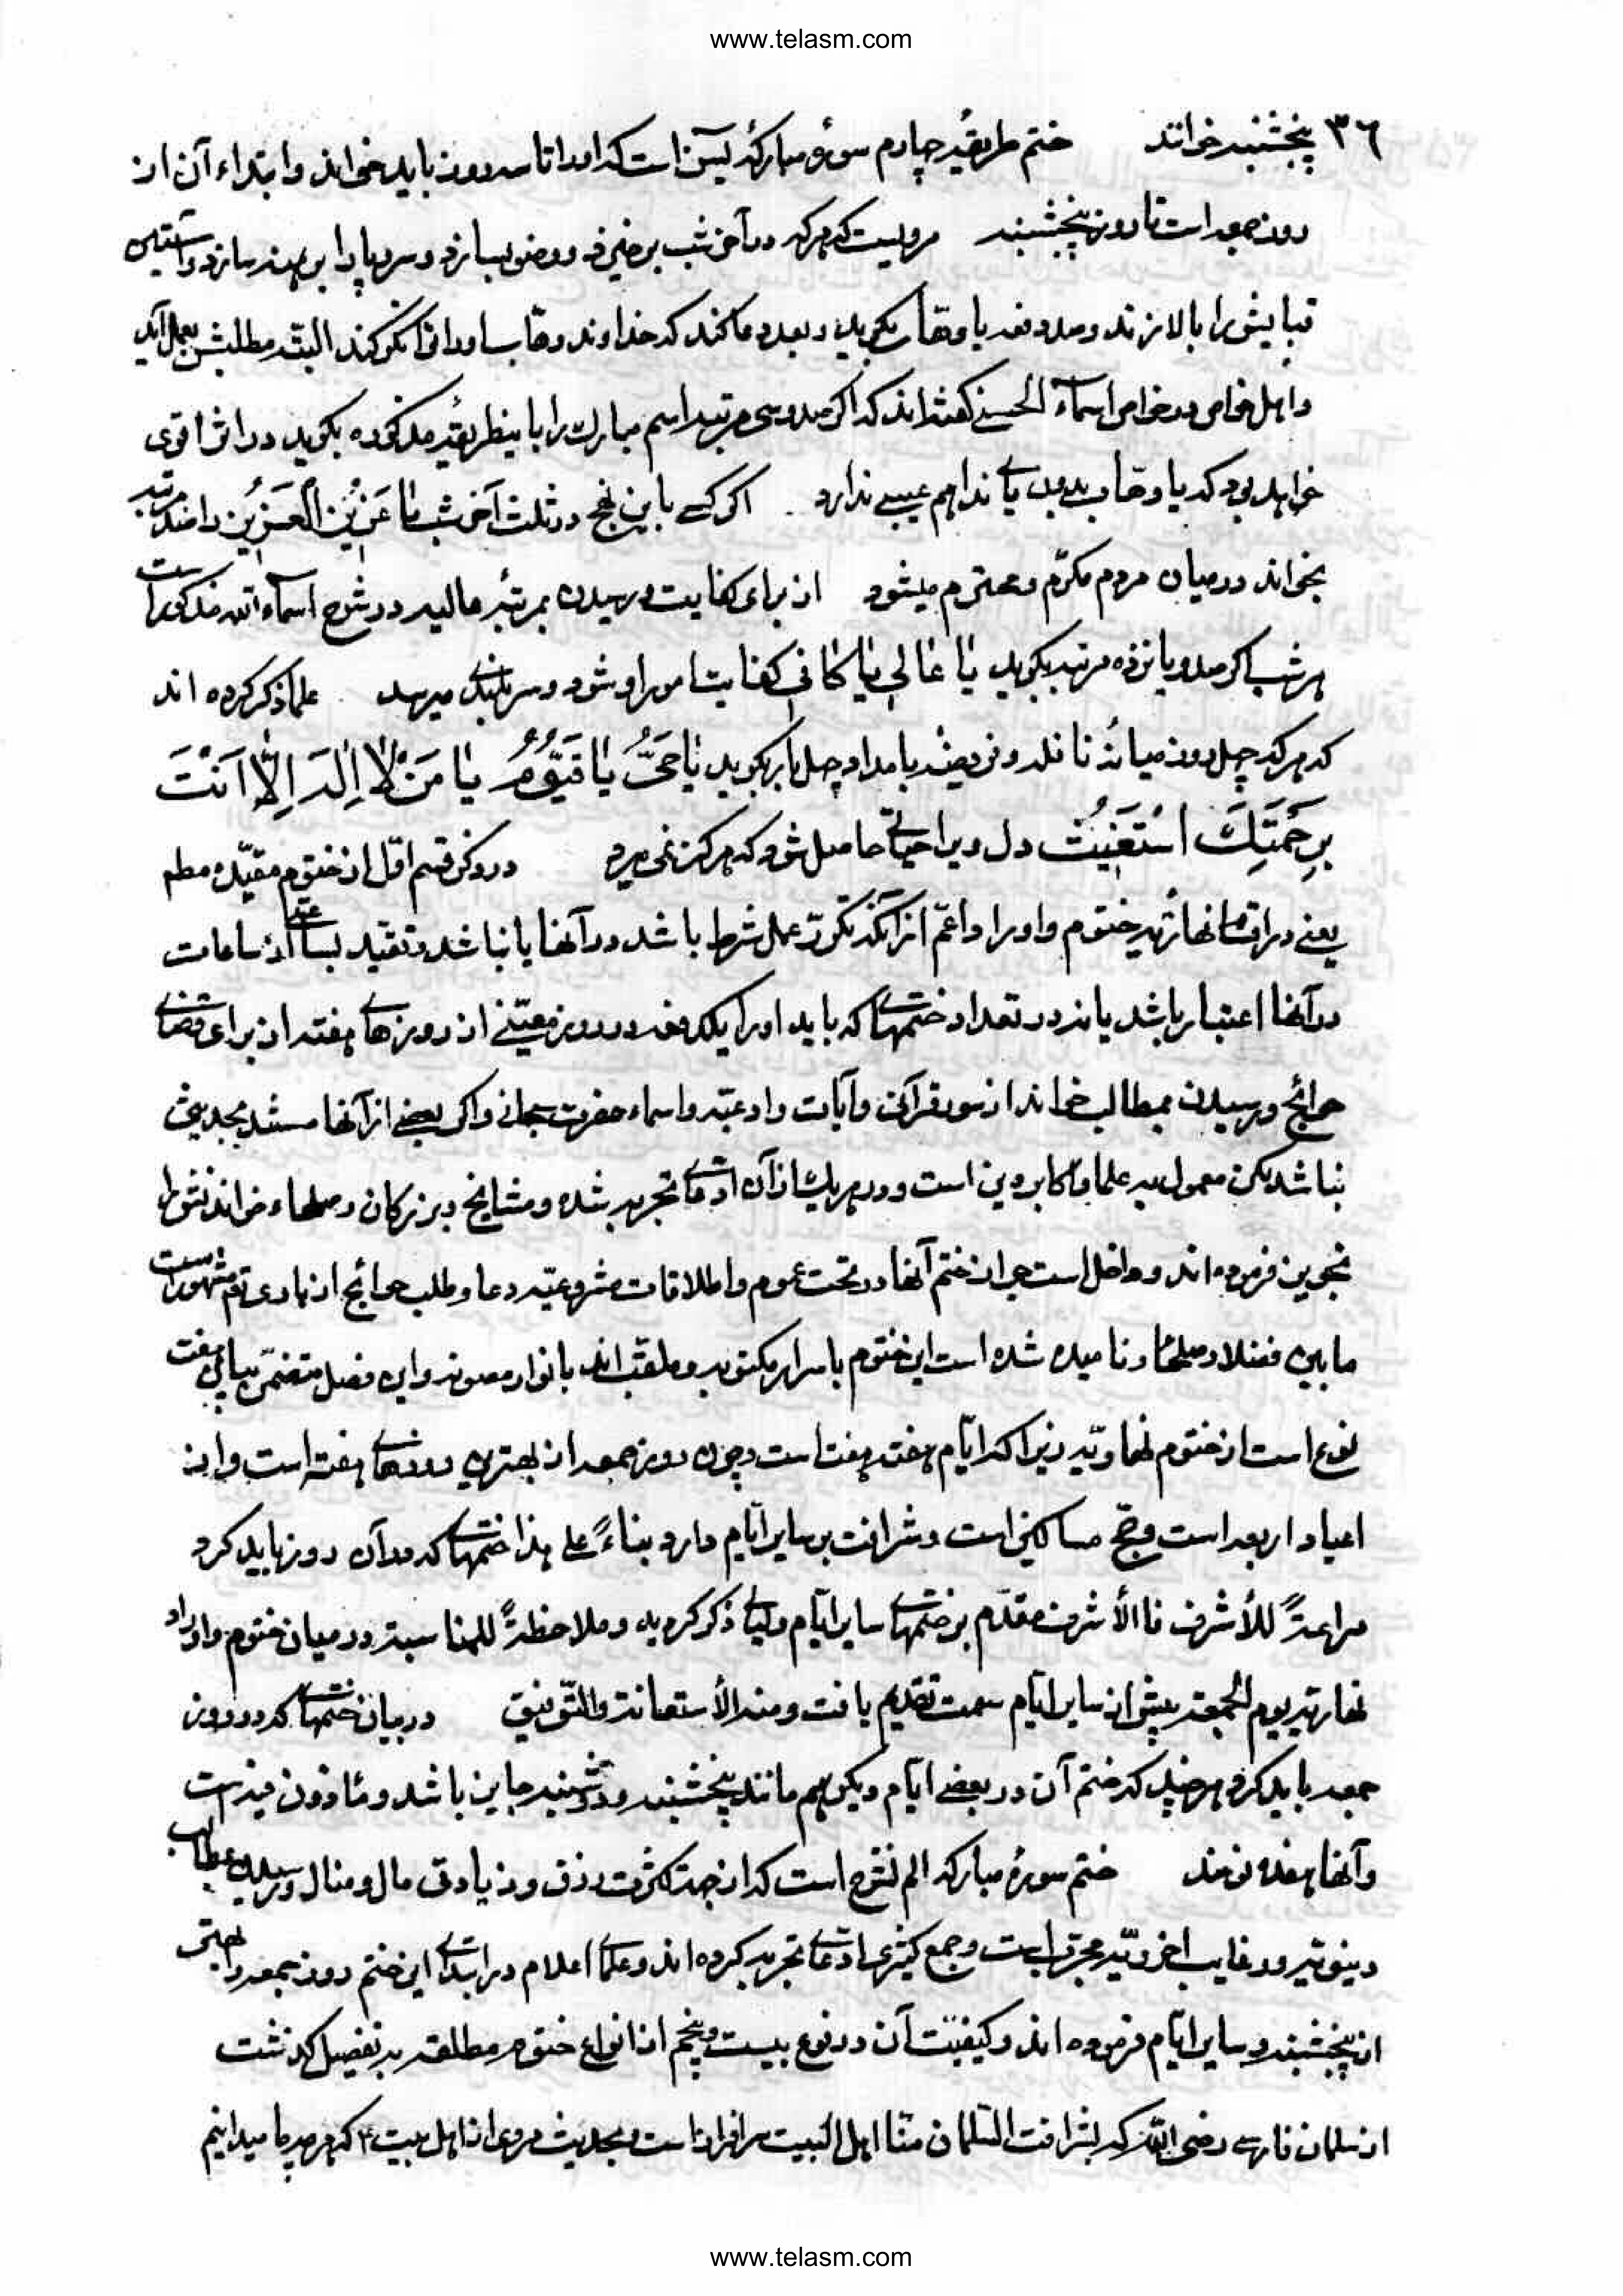 www.telasm.com
۳۶ پنجشنبه خوانند ختم طریقه چهارم سورهٔ مبارکهٔ یس است که او را تا سه روز باید خواند و ابتداء آن از
روز جمعه است تا روز پنجشنبه مرویست که هر که در آخر شب برخیزد و وضو بسازد و سر و پا را برهنه سازد و آستین
قبایش را بالا زند و صد دفعه یا وهاب بگوید و بعد دعا کند که خداوند وهاب او را توانگر کند البته مطلبش بعمل آید
و اهل خواص در خواص اسماء الحسنی گفته‌اند که اگر صد و سی مرتبه اسم مبارک را باینطریقه مذکوره بگوید در اثر اقوی
خواهد بود که یا وهاب بدون یای ندا هم عیبی ندارد اگر کسی باین نهج در ثلث آخر شب یا عَزیزَ الْعَزیزِ را صد مرتبه
بخواند در میان مردم مکرّم و محترم میشود از برای کفایت و رسیدن بمرتبهٔ عالیه در شرح اسماء الله مذکور است
هر شب اگر صد و یازده مرتبه بگوید یا عالی یا کافی کفایت امور او شود و سربلندی میرسد علما ذکر کرده اند
که هر که چهل روز میانهٔ نافله و فریضهٔ بامداد چهل بار بگوید یا حَیُّ یا قَیُّومُ یا مَنْ لا اِلٰهَ اِلّا اَنْتَ
بِرَحْمَتِکَ اَسْتَغیثُ دل ویرا حیاتی حاصل شود که هرگز نمیرد در ذکر قسم اوّل از ختوم مقیّده مطم
یعنی در اقسام نهاریّه ختوم و اوراد اعمّ از آنکه تکرّر عمل شرط باشد در آنها یا نباشد و تقیید بساعة از ساعات
در آنها اعتبار باشد یا نه در تعداد ختمهائی که باید او را یکدفعه در روز معیّنی از روزهای هفته از برای قضای
حوائج و رسیدن بمطالب خواند از سور قرآنی و آیات و ادعیّه و اسماء حضرت سبحانی و اگر بعضی از آنها مستند بحدیث
نباشد لکن معمول به علما و اکابر دین است و در هر یک از آن ادّعای تجربه شده و مشایخ و بزرگان و صلحاء خواندنش را
تجویز فرموده اند و داخل است جواز ختم آنها در تحت عموم و اطلاقات مشروعیّه دعا و طلب حوائج از باری تع مشهور است
مابین فضلا و صلحا و نامیده شده است این ختوم باسرار مکتوبه و ملقب اند بانوار مصونه و این فصل متضمّن بیان هفت
نوع است از ختوم نهاریّه زیرا که ایّام هفته هفت است و چون روز جمعه از بهترین روزهای هفته است و از
اعیاد اربعه است و حجّ مساکین است و شرافت بر سایر ایّام دارد بناءً علی هذا ختمهائی که در آن روز باید کرد
مراعةً للأشرف فالأشرف مقدّم بر ختمهای سایر ایّام و لیالی ذکر کردید و ملاحظةً للمناسبة در میان ختوم و اوراد
نهاریّه یوم الجمعه پیش از سایر ایّام سمت تقدیم یافت و منه الأستعانة والتّوفیق در بیان ختمهائی که در روز
جمعه باید کرد هر چند که ختم آن در بعضی ایّام دیگر هم مانند پنجشنبه و دوشنبه جایز باشد و مأذون فیه است
و آنها هفده نوعند ختم سورهٔ مبارکه الم نشرح است که از جهت کثرت رزق و زیادتی مال و منال و رسیدن بمطالب
دینویّه و رغایب اخرویّه مجرّبست و جمع کثیری ادّعای تجربه کرده اند و علمای اعلام در ابتدای این ختم روز جمعه را بهتر
از پنجشنبه و سایر ایّام فرموده اند و کیفیّت آن در نوع بیست و پنجم از انواع ختوم مطلقه بتفصیل گذشت
از سلمان فارسی رضی الله که بشرافت السّلمان منّا اهل البیت سرافراز است و بحدیث مروی از اهل بیت ع که هر چه ما میدانیم
www.telasm.com